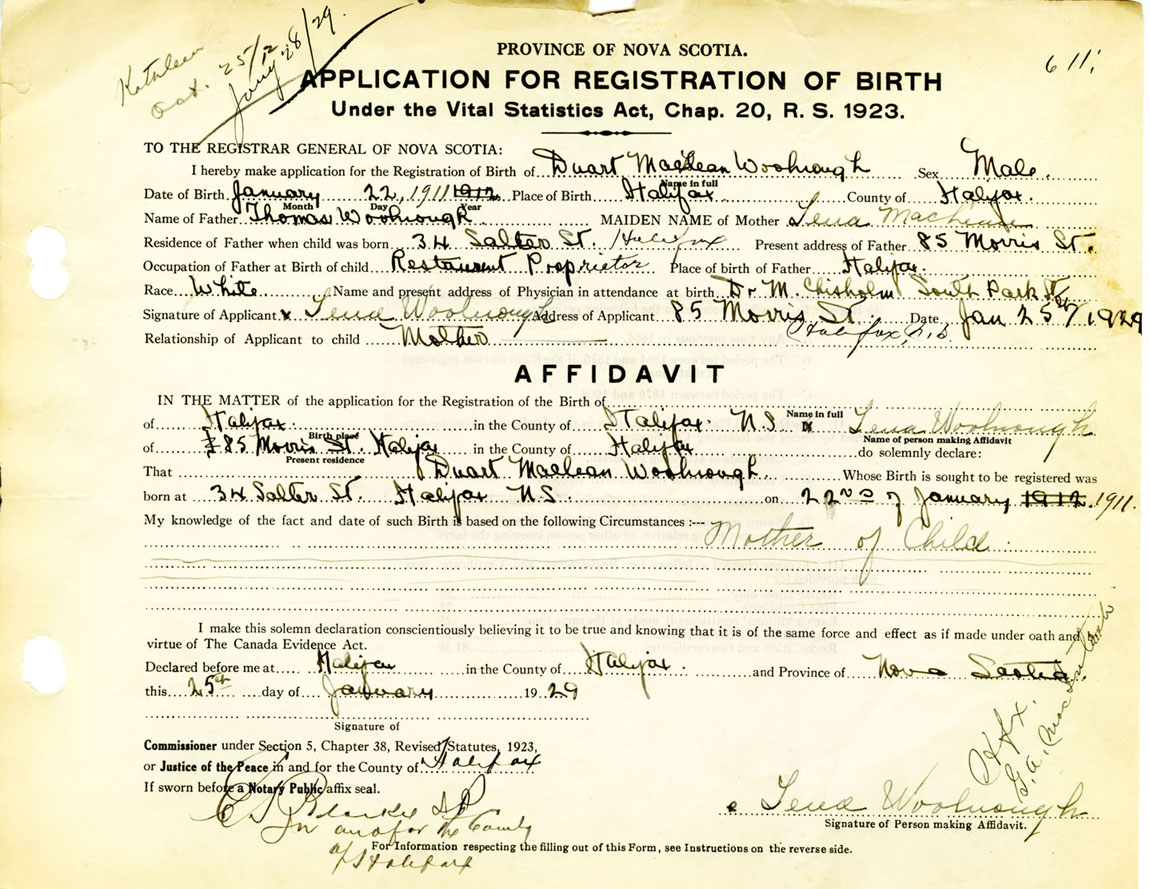 Kathleen
Oct. 25/12
Jany 28/29.
611
PROVINCE OF NOVA SCOTIA.
APPLICATION FOR REGISTRATION OF BIRTH
Under the Vital Statistics Act, Chap. 20, R. S. 1923.
TO THE REGISTRAR GENERAL OF NOVA SCOTIA:
I hereby make application for the Registration of Birth of Duart MacLean Woolnough Sex Male.
Name in full
Date of Birth January 22, 1911 1912 Place of Birth Halifax County of Halifax.
Month Day Year
Name of Father Thomas Woolnough MAIDEN NAME of Mother Lena
Residence of Father when child was born 34 Salter St. Halifax Present address of Father 85 Morris St.
Occupation of Father at Birth of child Restaurant Proprietor Place of birth of Father Halifax.
Race White Name and present address of Physician in attendance at birth Dr M. Chisholm South Park St
Signature of Applicant x Lena Woolnough Address of Applicant 85 Morris St. Date Jan 25th/1929
Halifax, N.S.
Relationship of Applicant to child Mother
AFFIDAVIT
IN THE MATTER of the application for the Registration of the Birth of
Name in full
of Halifax in the County of Halifax N.S. I, Lena Woolnough
Birth place Name of person making Affidavit
of 85 Morris St. Halifax in the County of Halifax do solemnly declare:
Present residence
That Duart Maclean Woolnough Whose Birth is sought to be registered was
born at 34 Salter St. Halifax N.S. on 22nd of January 1912. 1911.
My knowledge of the fact and date of such Birth is based on the following Circumstances :--- Mother of Child.
I make this solemn declaration conscientiously believing it to be true and knowing that it is of the same force and effect as if made under oath and by
virtue of The Canada Evidence Act.
Declared before me at Halifax in the County of Halifax. and Province of Nova Scotia.
this 25th day of January 1929
Signature of
Commissioner under Section 5, Chapter 38, Revised Statutes, 1923,
or Justice of the Peace in and for the County of Halifax
If sworn before a Notary Public affix seal.
In and for the County
of Halifax
Hfx.
Lena Woolnough
Signature of Person making Affidavit.
For Information respecting the filling out of this Form, see Instructions on the reverse side.